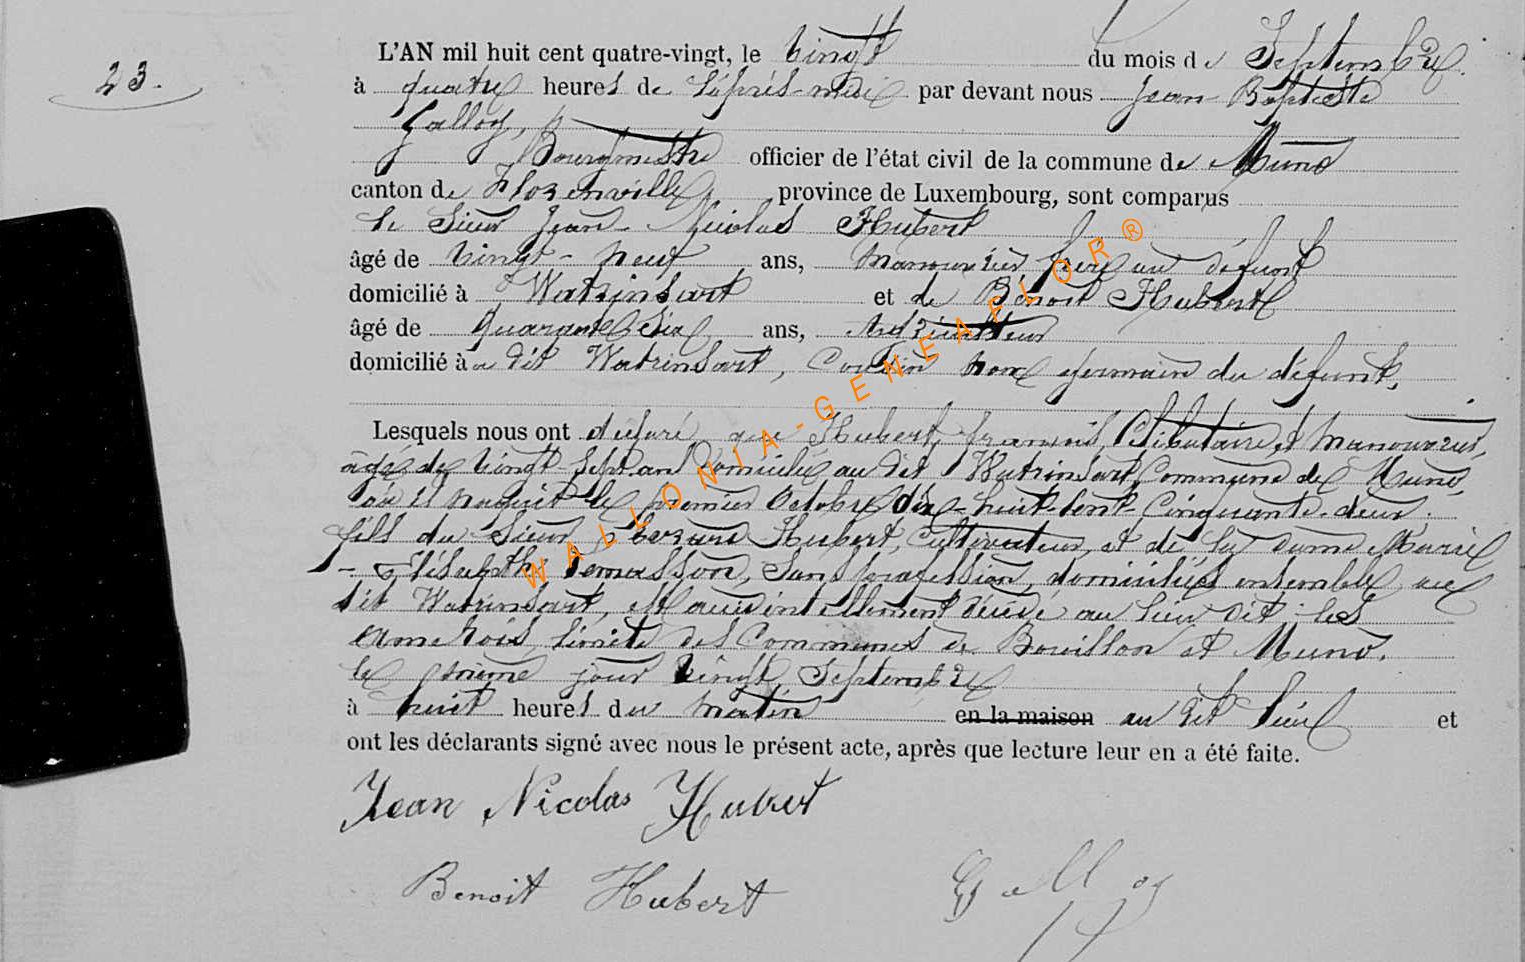 23.
L'AN mil huit cent quatre-vingt, le vingt du mois de Septembre
à quatre heures de l'après-midi par devant nous Jean Baptiste
Galloy,
Bourgmestre officier de l'état civil de la commune de Muno
canton de Florenville, province de Luxembourg, sont comparus
le Sieur Jean-Nicolas Hubert
âgé de vingt-neuf ans, manouvrier frère au défunt
domicilié à Watrinsart et de Benoit Hubert
âgé de quarante six ans, cultivateur
domicilié à au dit Watrinsart, Cousin non germain du défunt,
Lesquels nous ont déclaré que Hubert, françois, Célibataire, et manouvrier,
âgé de vingt-sept ans domicilié au dit Watrinsart, Commune de Muno,
où il naquit le premier Octobre dix-huit-cent-Cinquante-deux,
fils du Sieur Hubert, Cultivateur, et de la dame Marie
-Elisabeth Demasson, sans profession, domiciliés ensemble au
dit Watrinsart, est accidentellement décédé au lieu dit: les
limite des Communes de Bouillon et Muno.
le même jour vingt Septembre
à huit heures du matin en la maison au dit lieu et
ont les déclarants signé avec nous le présent acte, après que lecture leur en a été faite.
Jean Nicolas Hubert
Benoit Hubert Galloy
WALLONIA-GENEAFLOR®